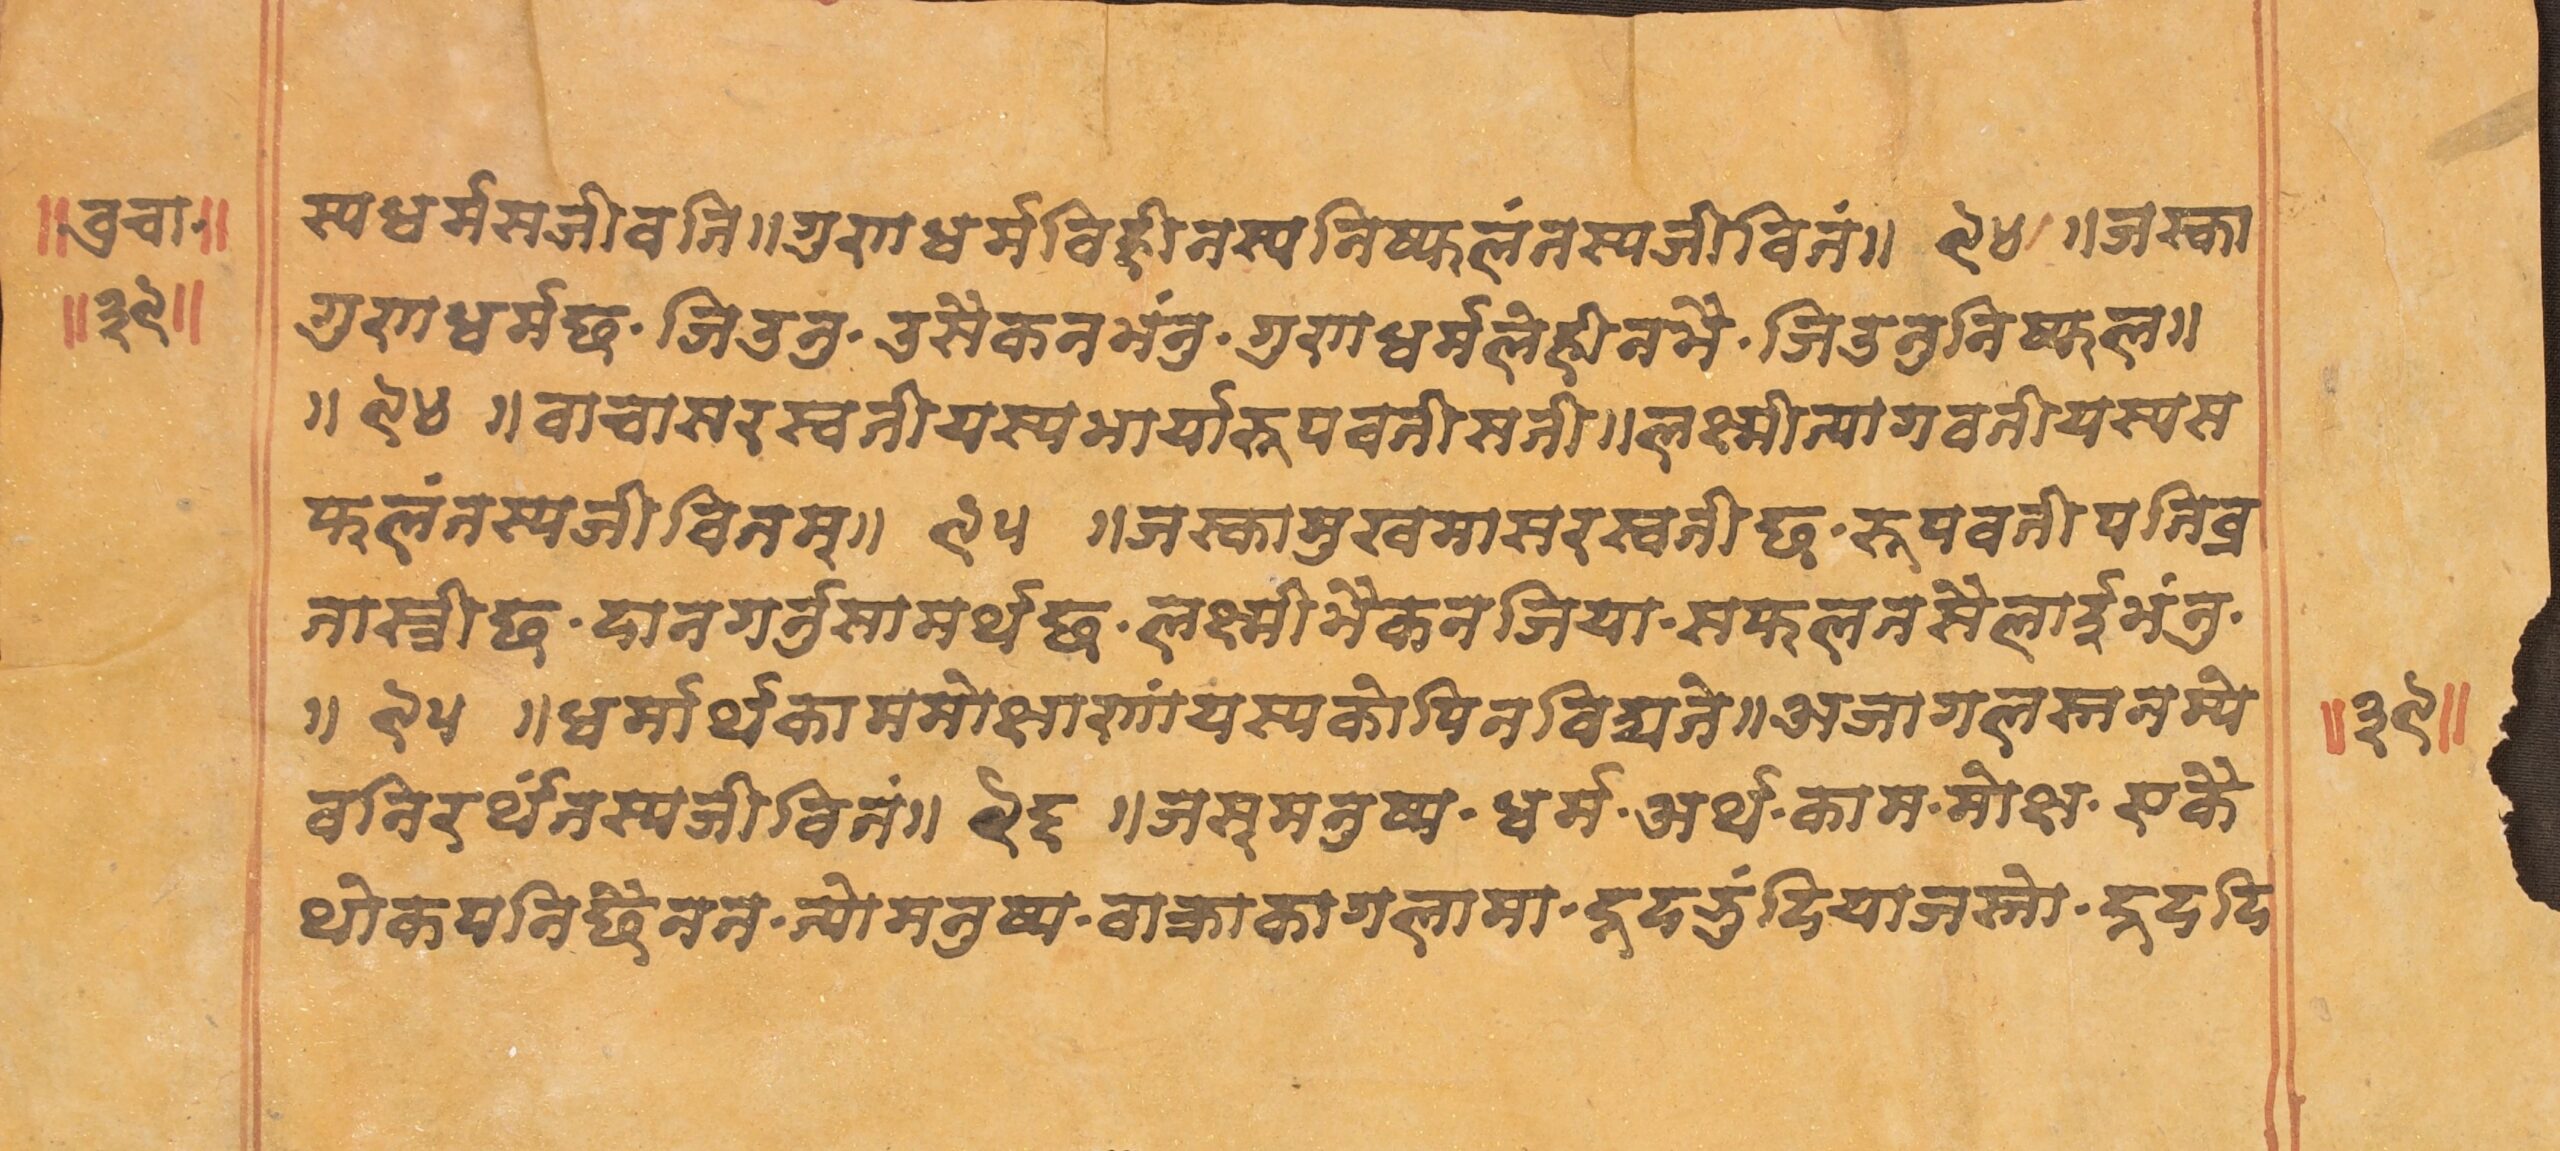 ॥वुचा॰॥
॥३९॥
स्यधर्मसजीवति॥गुणधर्मविहीनस्यनिष्फलंतस्यजीवितं॥ ९४ ॥जस्का
गुणधर्मछ॰ जिउनु॰ उसैकनभंनु॰ गुणधर्मलेहीनभै॰ जिउनुनिष्फल॥
॥ ९४ ॥वाचासरस्वतीयस्यभार्यारूपवतीसती॥लक्ष्मीत्यागवतीयस्यस
फलंतस्यजीवितम्॥ ९५ ॥जस्कामुखमासरस्वतीछ॰ रूपवतीपतिव्र
तास्त्रीछ॰ दानगर्नुसामर्थछ॰ लक्ष्मीभैकनजिया॰ सफलतसैलाईभंनु॰
॥ ९५ ॥धर्मार्थकाममोक्षाणांयस्यकोपिनविद्यते॥अजागलस्तनस्ये
वनिरर्थंतस्यजीवितं॥ ९६ ॥जस्मनुष्य॰ धर्म॰ अर्थ॰ काम॰ मोक्ष॰ एकै
थोकपनिछैनन॰ त्योमनुष्य॰ वाक्राकागलामा॰ दूदनुंदियाजस्तो॰ दूददि
॥३९॥